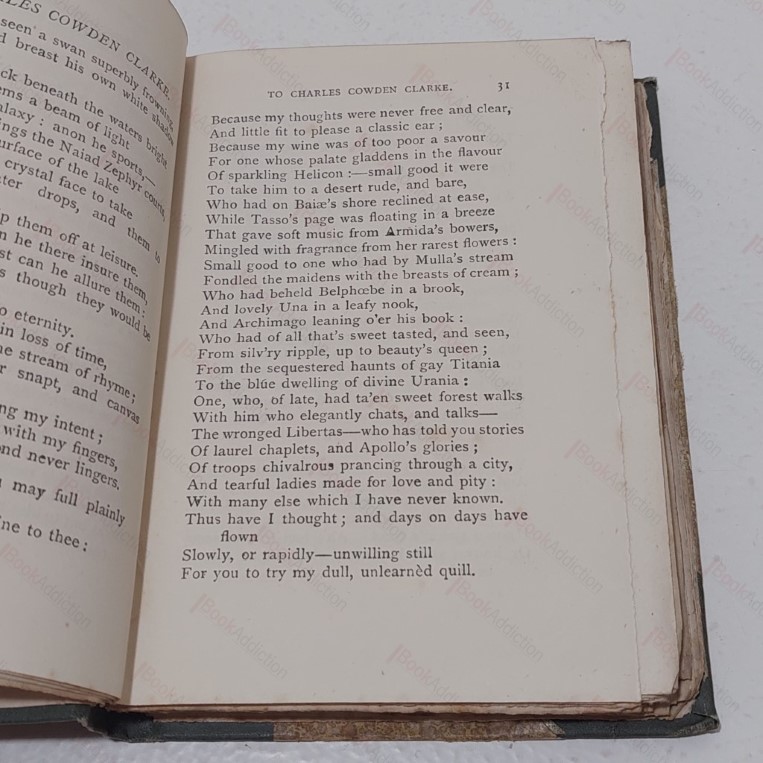 LES COWDEN CLARKE.
seen a swan superbly frowning,
breast his own white shadow
ck beneath the waters bright
ems a beam of light
alaxy : anon he sports,—
ings the Naiad Zephyr courts,
urface of the lake
crystal face to take
ter drops, and them to
p them off at leisure.
n he there insure them,
st can he allure them:
s though they would be
o eternity.
in loss of time,
he stream of rhyme;
r snapt, and canvas
ng my intent;
with my fingers,
nd never lingers.
may full plainly
ine to thee:
TO CHARLES COWDEN CLARKE. 31
Because my thoughts were never free and clear,
And little fit to please a classic ear ;
Because my wine was of too poor a savour
For one whose palate gladdens in the flavour
Of sparkling Helicon :—small good it were
To take him to a desert rude, and bare,
Who had on Baiæ's shore reclined at ease,
While Tasso's page was floating in a breeze
That gave soft music from Armida's bowers,
Mingled with fragrance from her rarest flowers :
Small good to one who had by Mulla's stream
Fondled the maidens with the breasts of cream ;
Who had beheld Belphœbe in a brook,
And lovely Una in a leafy nook,
And Archimago leaning o'er his book :
Who had of all that's sweet tasted, and seen,
From silv'ry ripple, up to beauty's queen ;
From the sequestered haunts of gay Titania
To the blúe dwelling of divine Urania :
One, who, of late, had ta'en sweet forest walks
With him who elegantly chats, and talks—
The wronged Libertas—who has told you stories
Of laurel chaplets, and Apollo's glories ;
Of troops chivalrous prancing through a city,
And tearful ladies made for love and pity :
With many else which I have never known.
Thus have I thought ; and days on days have
flown
Slowly, or rapidly—unwilling still
For you to try my dull, unlearnèd quill.
BookAddiction